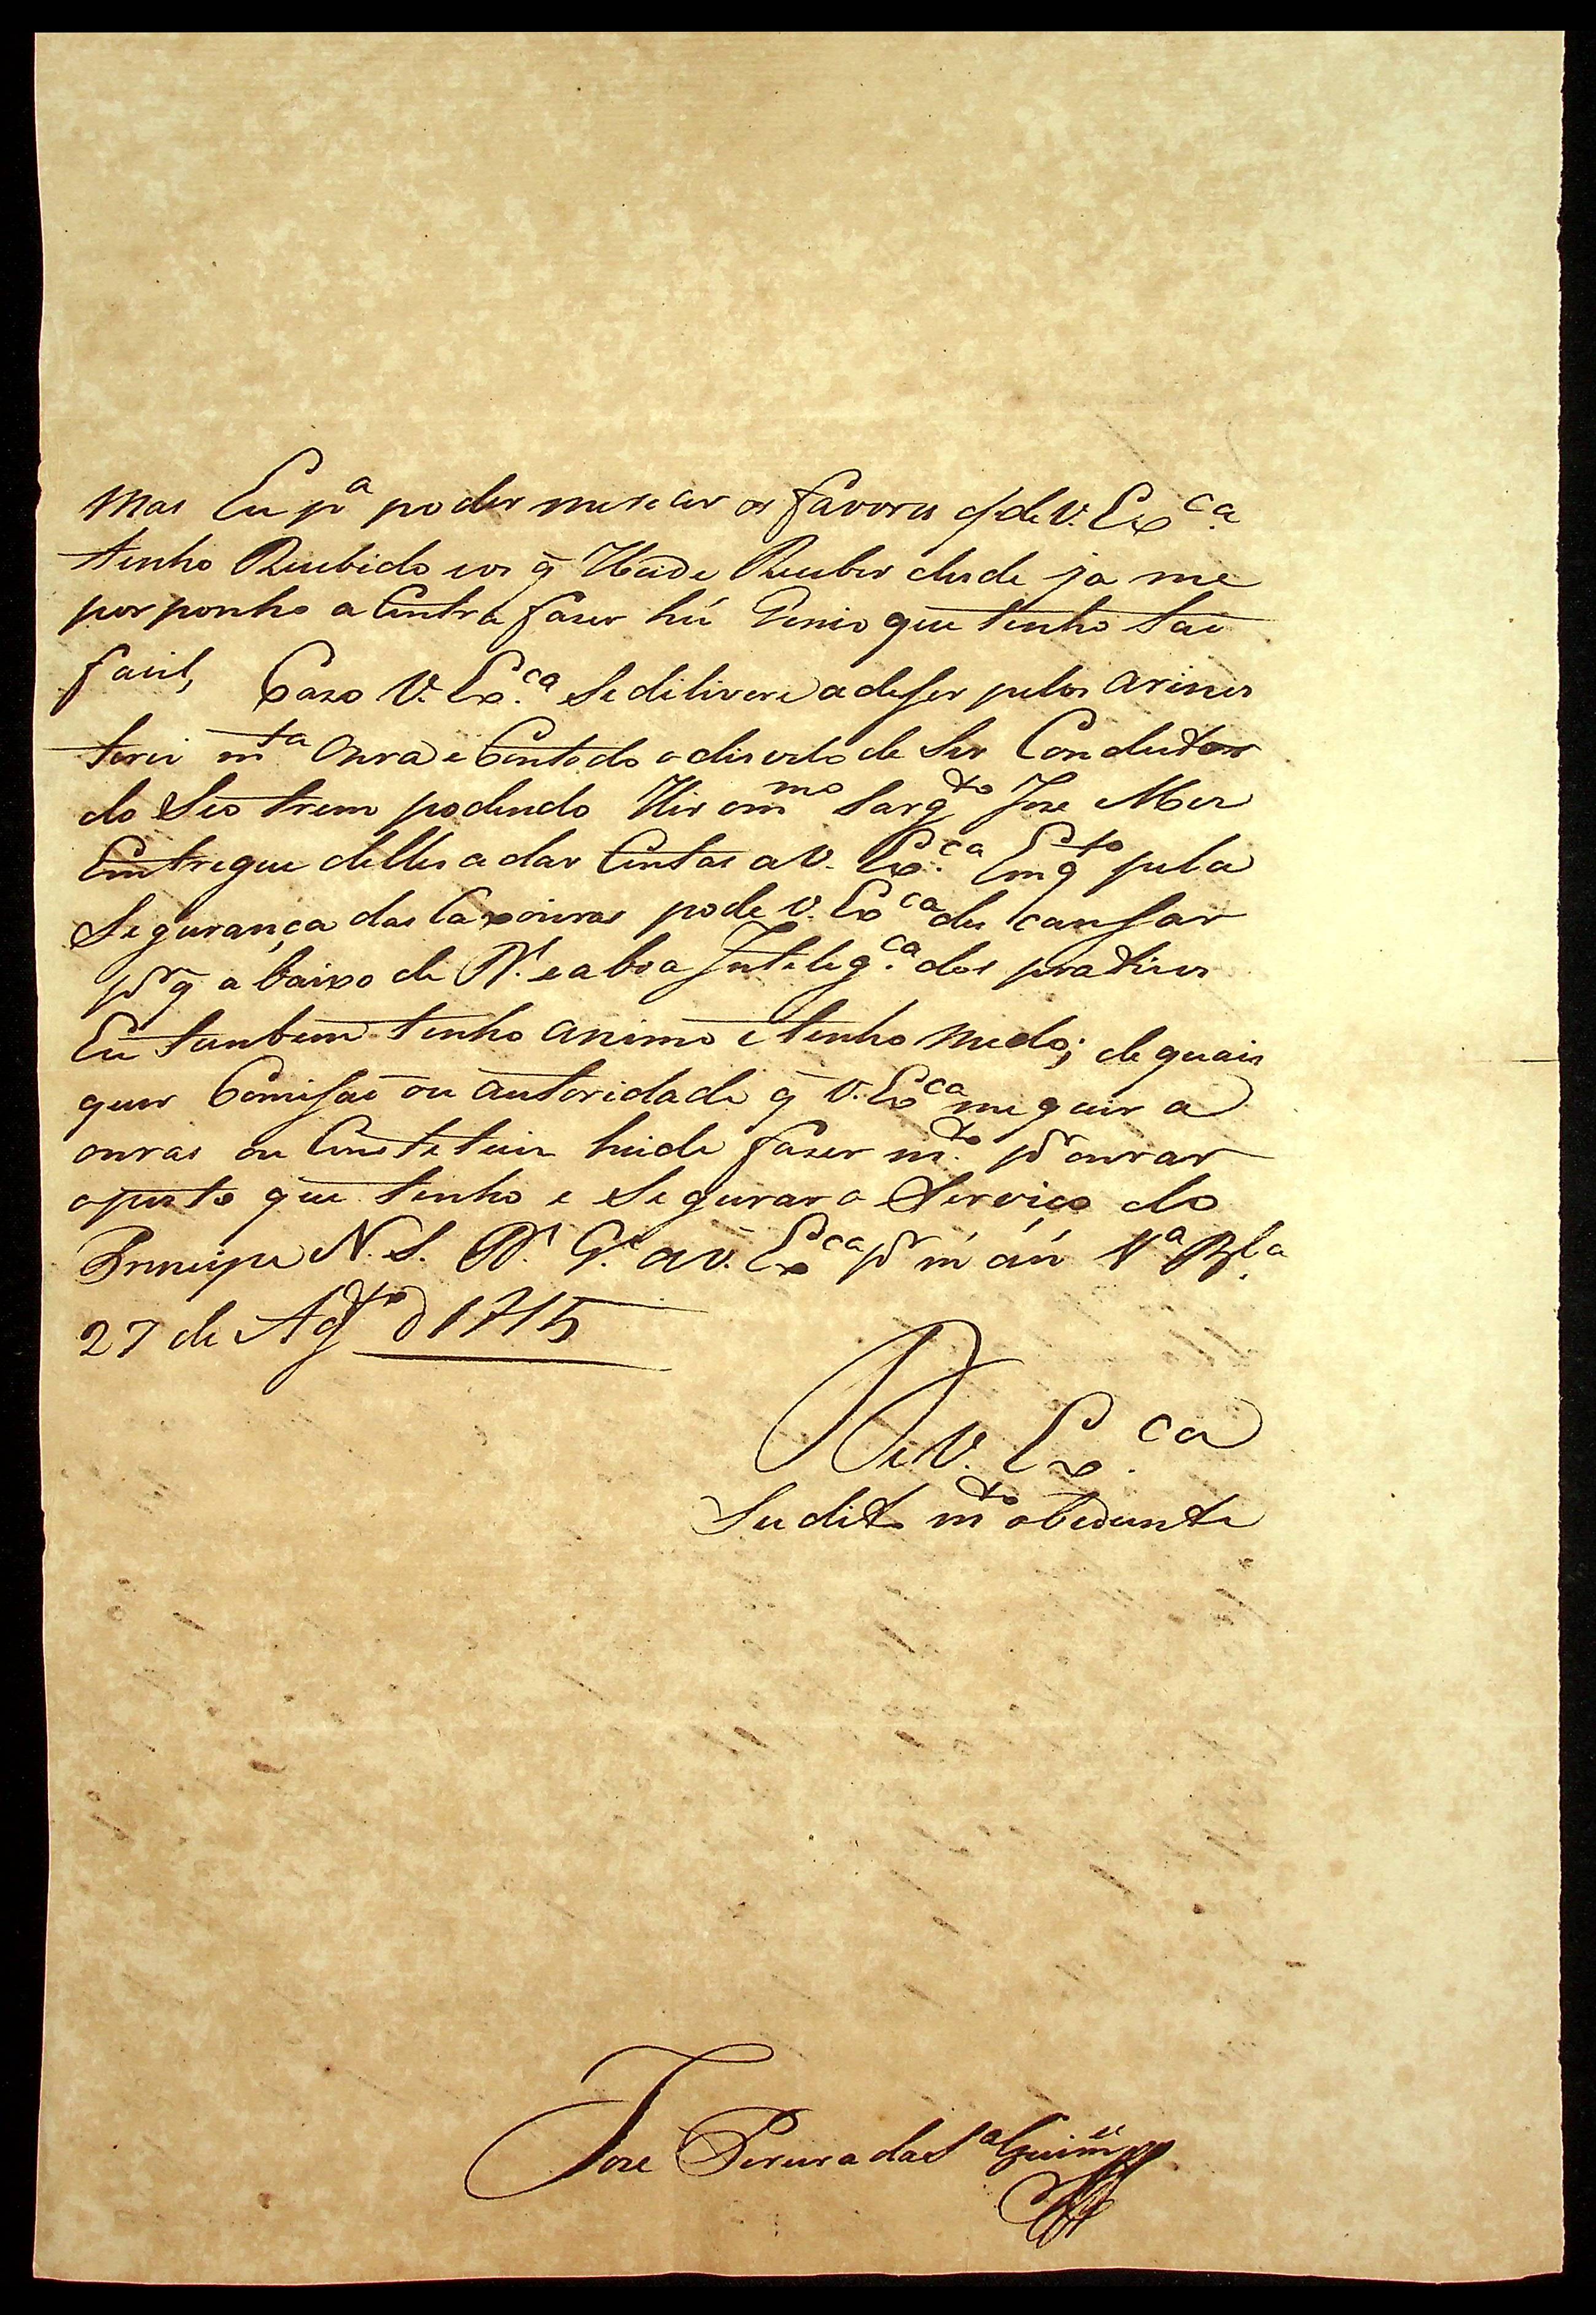 Mas Eu pª poder merecer os favores q̃ de V. Exca.
tenho Recebido e os q̃ Heide Receber desde ja me
porponho a Contra faser hú Genio que tenho taõ
facil, Cazo V. Exca. Se delivere a deser pelos arinos
terei mta Onra e Contodo o disvelo de Ser Condutor
do Seo trem podendo Hir o mmo Sargto Joze Mer
Emtregue delles a dar Contas a V. Exca. Emqto pela
Segurança das Caxoiras pode V. Exca des cansar
pr q̃ a baixo de Ds. e a boa Intelig.ca dos praticos
Eu tambem tenho animo e tenho medo; de quais
quer Comisaõ ou autoridade q̃ V. Exca me queira
onrar ou Constetuir heide faser mto. pr onrar
o posto que tenho e Segurar o Serviço do
Principe N. S. Ds. Ge. a V. Exca pr m. an. Va Bla
27 de Agto d 1715
De V. Ex.ca
Sudito mto obediente
Joze Pereira da Sª Guimes